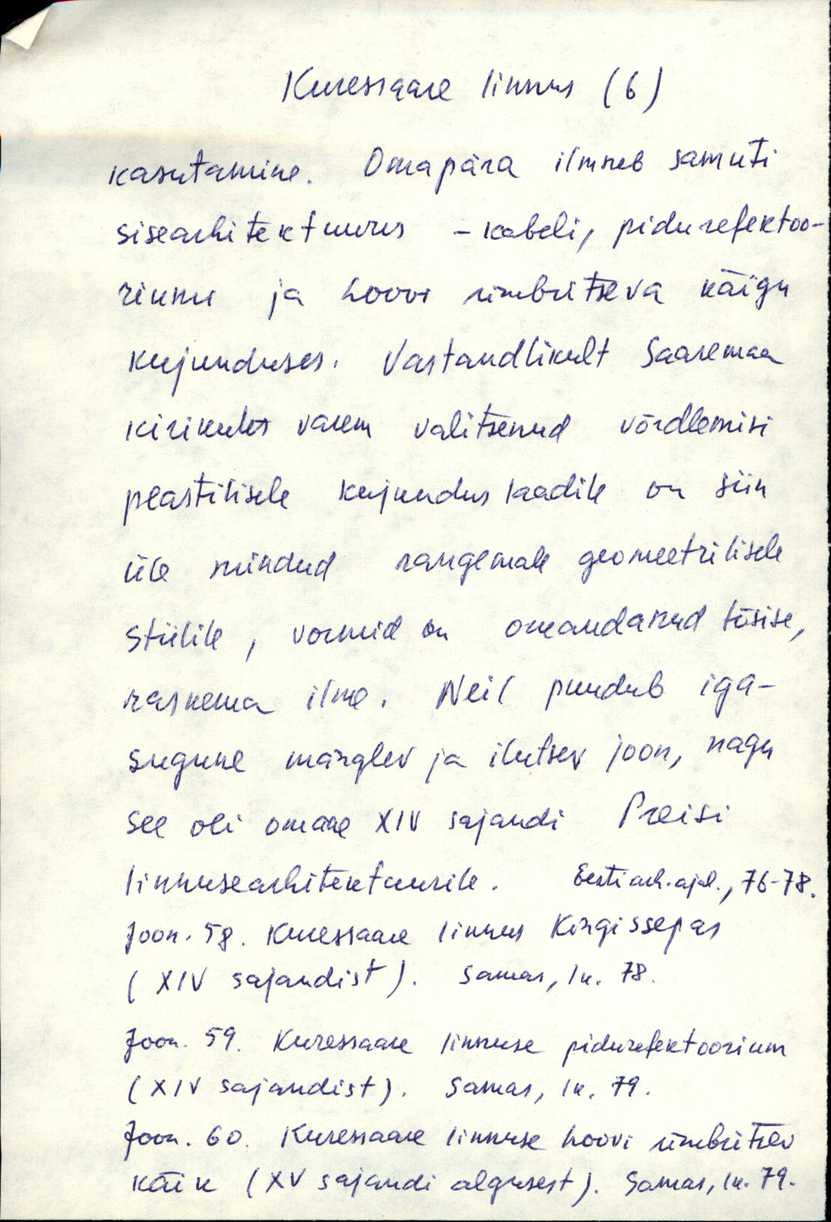 Kuressaare linnus (6)
kasutamine. Omapära ilmneb samuti
sisearhitektuuris - kabeli, pidurefektoo-
riumi ja hoovi ümbritseva käigu
kujunduses. Vastandlikult Saaremaa
kirikutes varem valitsenud võrdlemisi
plastilisele kujunduslaadile on siin
üle mindud rangemale geomeetrilisele
stiilile, vormid on omandanud tõsise,
raskema ilme. Neil puudub iga-
sugune mänglev ja ilutsev joon, nagu
see oli omane XIV sajandi Preisi
linnusearhitektuurile. Eesti arh. ajal., 76-78.
Joon. 58. Kuressaare linnus Kingissepas
(XIV sajandist). Samas, lk. 78.
Joon. 59. Kuressaare linnuse pidurefektoorium
(XIV sajandist). Samas, lk. 79.
Joon. 60. Kuressaare linnuse hoovi ümbritsev
käik (XV sajandi algusest). Samas, lk. 79.